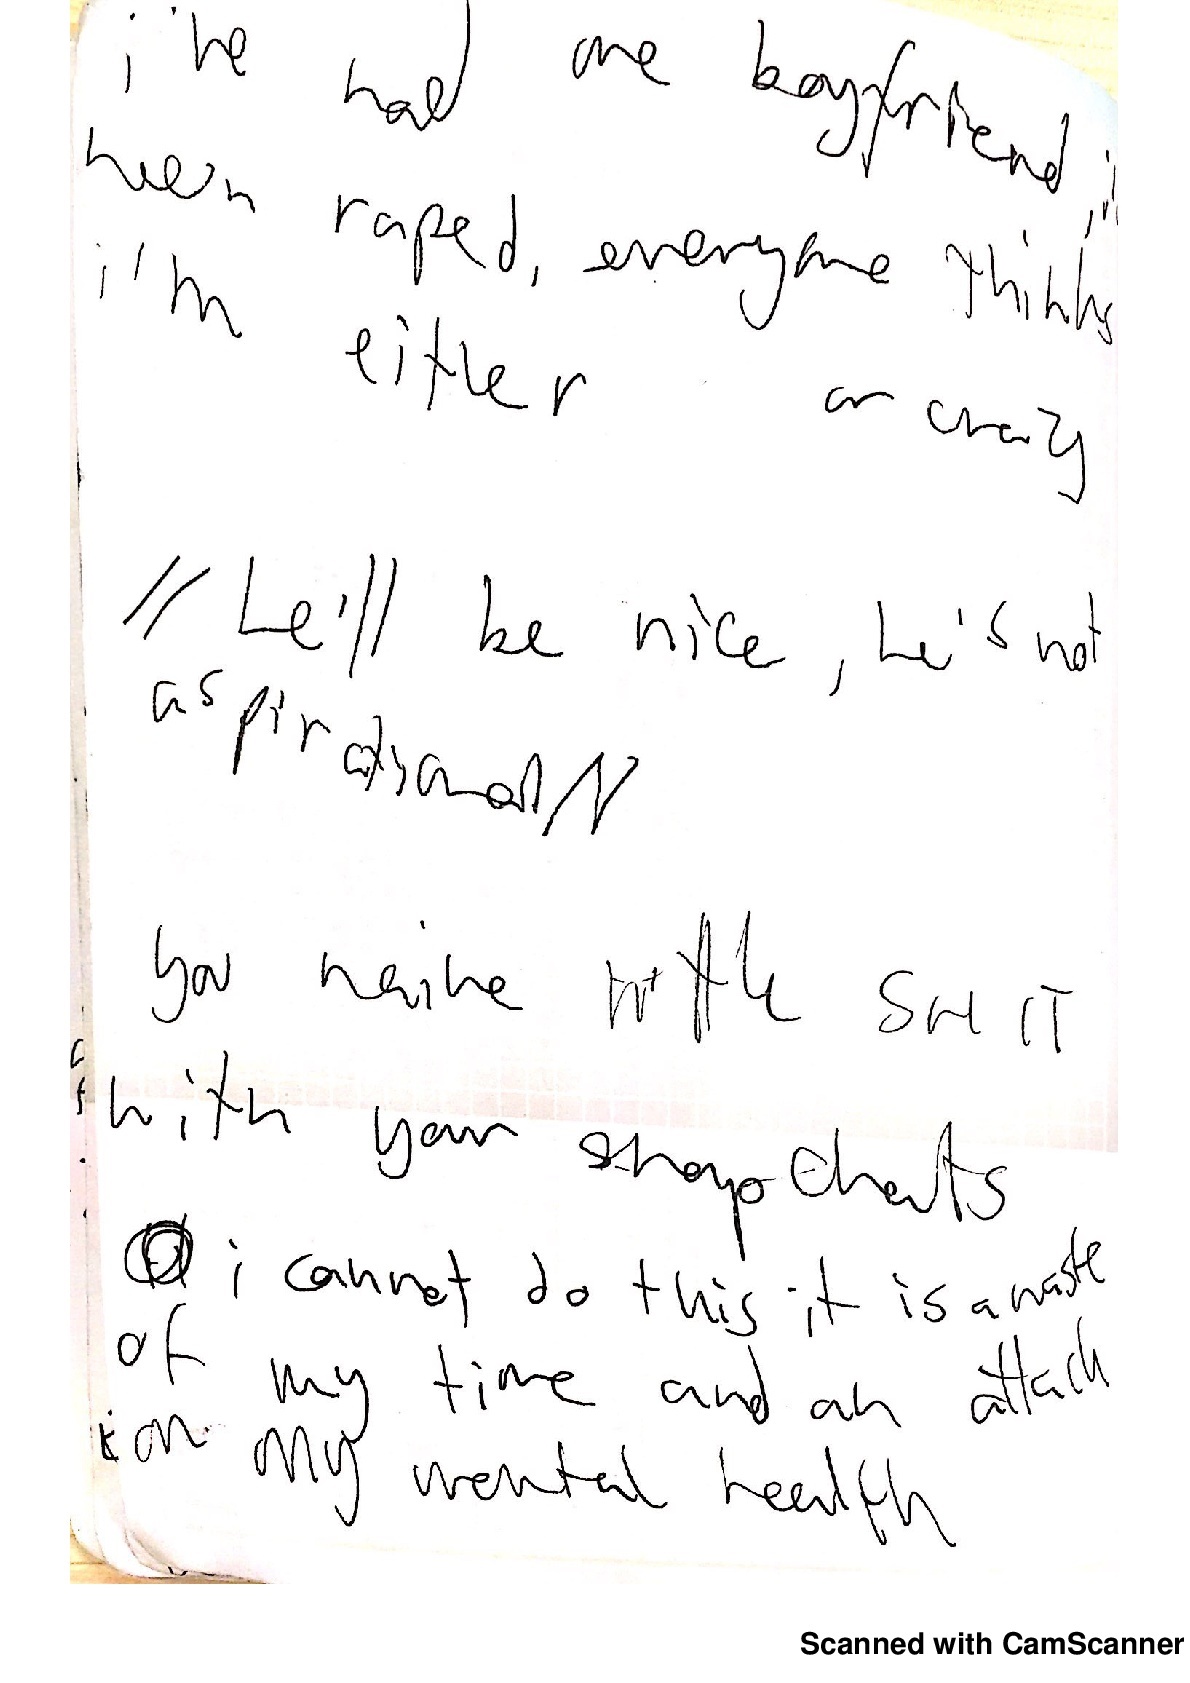 i've had one boyfriend, i've
been raped, everyone thinks
i'm either or crazy
// he'll be nice, he's not
aspirational //
you naive little SHIT
with your shop
i cannot do this it is a waste
of my time and an attack
on my mental health
Scanned with CamScanner